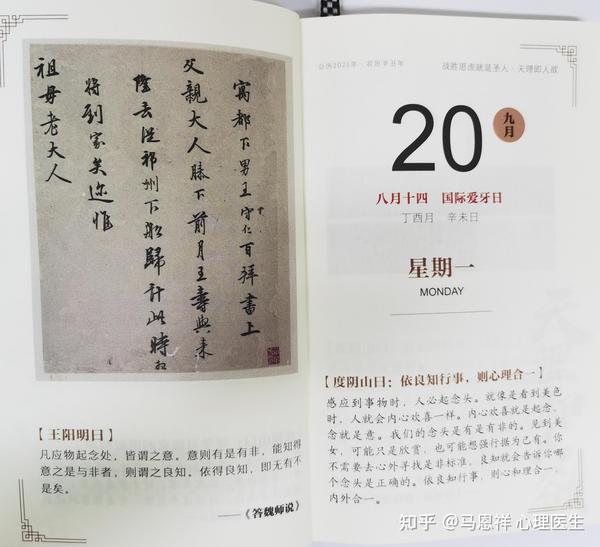 寓都下男王守仁百拜書上
父親大人膝下前月王壽與来
隆去從祁州下船歸計此時想
將到家矣迩惟
祖母老大人
【王阳明曰】
凡应物起念处，皆谓之意。意则有是有非，能知得
意之是与非者，则谓之良知。依得良知，即无有不
是矣。
——《答魏师说》
公历2021年·农历辛丑年
战胜思虑就是圣人·天理即人欲
20
九月
八月十四 国际爱牙日
丁酉月 辛未日
星期一
MONDAY
【度阴山曰：依良知行事，则心理合一】
感应到事物时，人必起念头。就像是看到美色
时，人就会内心欢喜一样。内心欢喜就是起念，
念就是意。我们的念头是有是有非的。见到美
女，可能只是欣赏，也可能想强行据为已有。你
不需要去心外寻找是非标准，良知就会告诉你哪
个念头是正确的。依良知行事，则心和理合一，
内外合一。
知乎 @马恩祥 心理医生